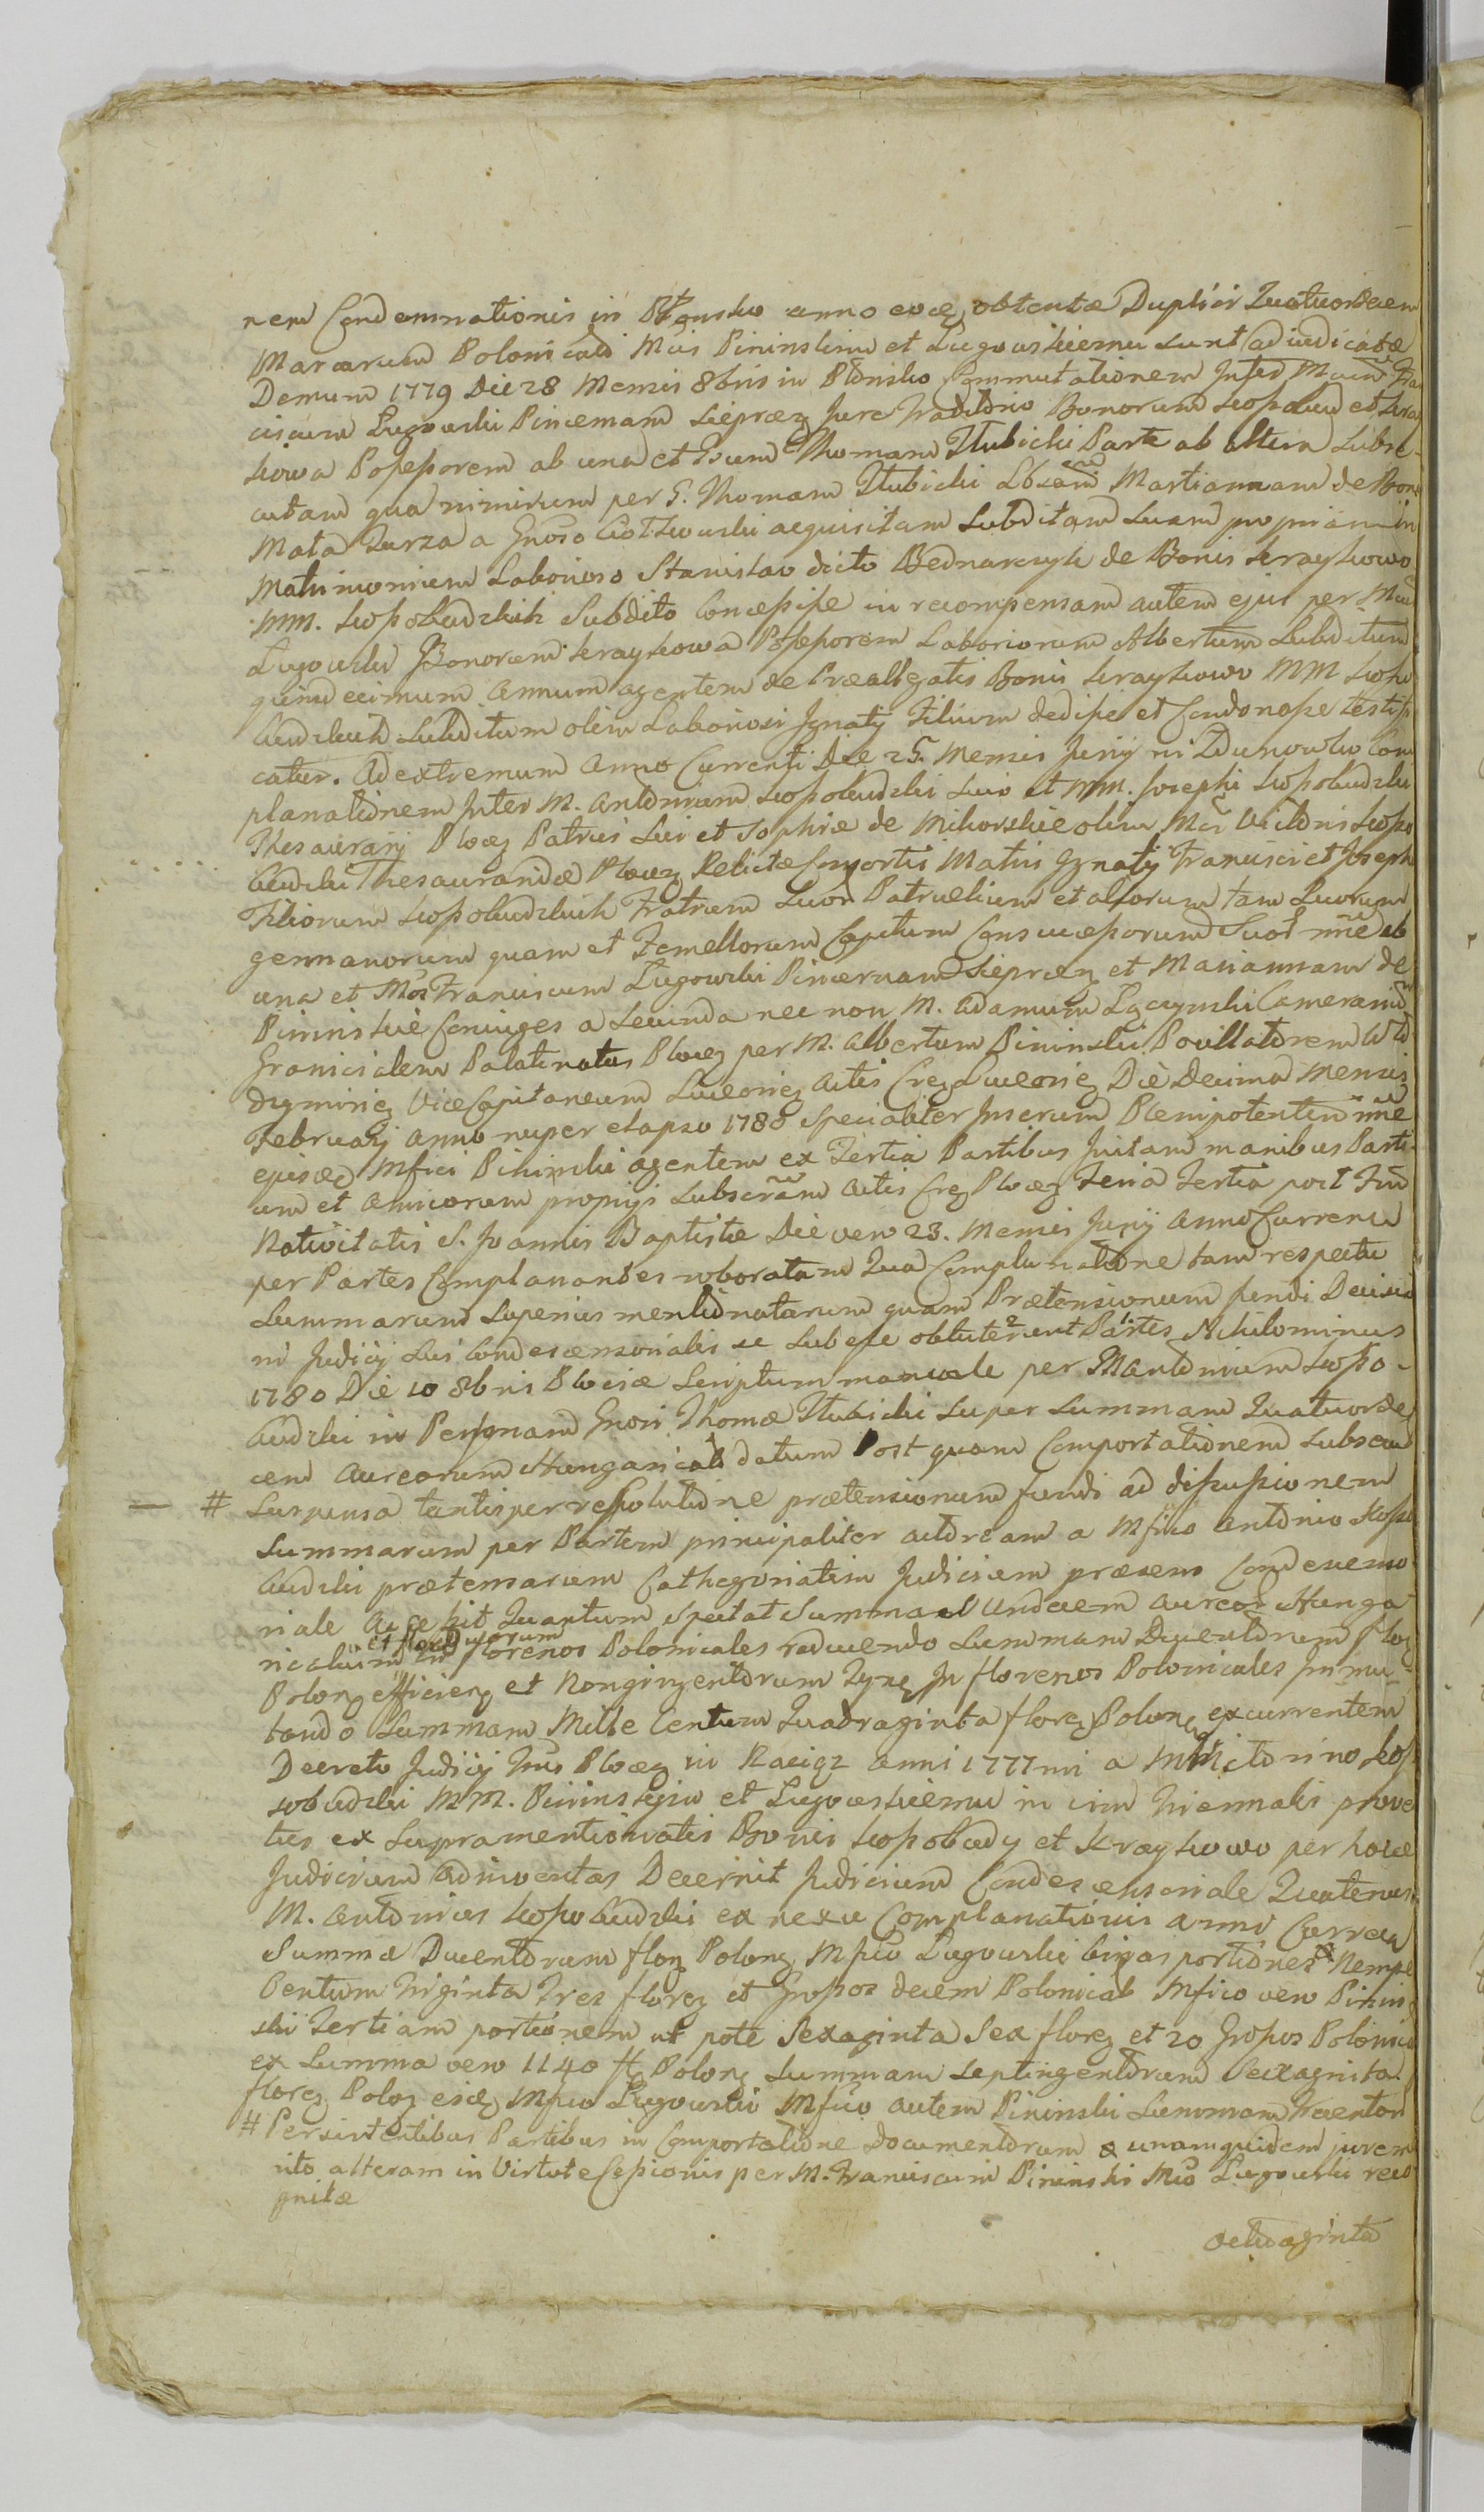 nem Condemnationis in Płońsko anno eoq obtentæ Duplici Quatuordecem
Marcarum Polonicad Mcis Pininskim et Ługowskiemu sunt adiudicatæ
Demum 1779 Die 28 Mensis 8bris in Płońsko Commutationem Inter Mcum Fran
ciscum Ługowski Pincernam Sieprcz Jure Traditorio Bonorum Scopobud et Kray
kowa Possessorem ab una et Gsum Thomam Itubicki Parte ab altera Subse-
cutam qua nimirum per G. Thomam Itubicki Martiannam de Bonis
Mała Turza a Gnoso Ciołkowski acquisitam Subditam suam propriam in
Matrimonium Laborioso Stanislao dicto Bednarczyk de Bonis Kraykowo
MM. Scopobudzkich Subdito Concessisse in recompensam autem ejus per Mcum
Ługowski Bonorum Kraykowa Possessorem Laboriorum Albertum Subditum
quindecimum annum agentem de Præallegatis Bonis Kraykowo MM Scopo
budzkich Subditum olim Laboriosi Ignatij Filium dedisse et Condonasse testifi
catur. Ad extremum Anno Currenti Die 25. Mensis Junij in Zdunowko Com
planationem Inter M. Antonium Scopobudzki suo et MM. Josephi Scopobudzki
Thesaurarij Płocg Patrui sui et Sophiæ de Mikorskie olim Mci Victoris Scopo
budzki Thesaurandæ Płocg Relictæ Consortis Matris Ignatij Francisci et Joseph
Filiorum Scopobudzkich Fratrum suor Patruelium et aliorum tam suorum
germanorum quam et Femellorum Capitum Consuccessorum Suor nne ab
una et Mos Franciscum Ługowski Pincernam Sieprcz et Mariannam de
Pininskie Coniuges a secunda nec non M. Adamum Camerarium
Granicialem Palatinatus Płocg per M. Albertum Pininski Pocillatorem Wło
dzimirig Vice Capitaneum Luceorieg Actis Creg Luceorieg Die Decima Mensis
Februarij anno nuper elapso 1780 Specialiter Inserum Plenipotentem nne
ejusdq Mfici Pininski agentem ex Tertia Partibus Initam manibus Parti
um et Amicorum proprijs subscram Actis Creg Płocg Feria Tertia post Fm
Nativitatis S. Joannis Baptistæ Die vero 23. Mensis Junij Anno Currenti
per Partes Complanandes roboratam Qua Complanatione tam respectu
Summarum Superius mentionatarum quam Prætensionum fundi Decisio
ni Judicij sui Condescensorialis se subesse Partes Nihilominus
1780 Die 10 8bris Płociæ Scriptum manuale per M Antonium Scopo-
budzki in Personam Gnosi Thomæ Itubicki super summam Quatuorde
cem Aureorum Hungarical datum Post quam Comportationem Subsecu
# Suspensa tantisper resolutione prætensionum fundi ad discussionem
Summarum per Partem principaliter actoream a Mfico Antonio Scopo
budzki prætensarum Cathegoriatim Judicium præsens Condescenso
riale Accessit Quantum spectat Summam Undecem Aureor Hunga
ricalium in et flor Duorum florenos Polonicales reducendo Summam Ducentorum flog
Polong efficieng et Nongingentorum Tynf In florenos Polonicales Inmu-
tando Summam Mille Centum Quadraginta floreg Polong excurrentem
Decreto Judicij Tris Płocg in Raciąz anni 1777mi a M Victorino Scop
sobudzki MM. Pininskim et Ługowskiemu in vim triennalis prove
tus ex supramentionatis Bonis Scopobudy et Kraykowo per hocce
Judicium adinventas Decernit Judicium Condescensoriale Quatenus
M. Antonius Scopobudzki ex nexu Complanationis anni Curren
Summæ Ducentorum flog Polong Mfico Ługowski binas portiones Nempe
Centum Triginta Tres floreg et Grossos decem Polonical Mfico vero Pinin
ski Tertiam portionem ut pote Sexaginta Sex floreg et 20 Grossos Polonica
ex Summa vero 1140 fl Polong Summam Septingentorum Sexaginta
floreg Polog eidg Mfico Ługowski Mfico autem Pininski Summam Trecentor
# Persistentibus Partibus in Comportatione Documentorum & unamquidem juram
nto alteram in Virtute Cessionis per M. Franciscum Pininski Mco Ługowski reco
gnitæ
octuaginta